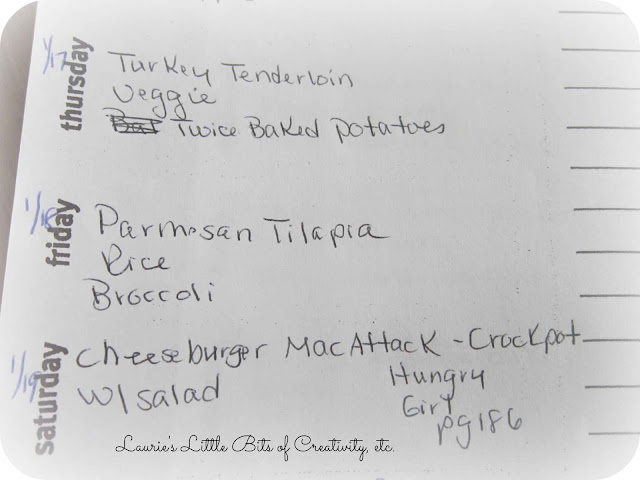 1/17
thursday
Turkey Tenderloin
Veggie
Twice Baked potatoes
1/18
friday
Parmesan Tilapia
Rice
Broccoli
1/19
saturday
Cheeseburger MacAttack - Crockpot
w/ salad
Hungry
Girl
pg 186
Laurie's Little Bits of Creativity, etc.